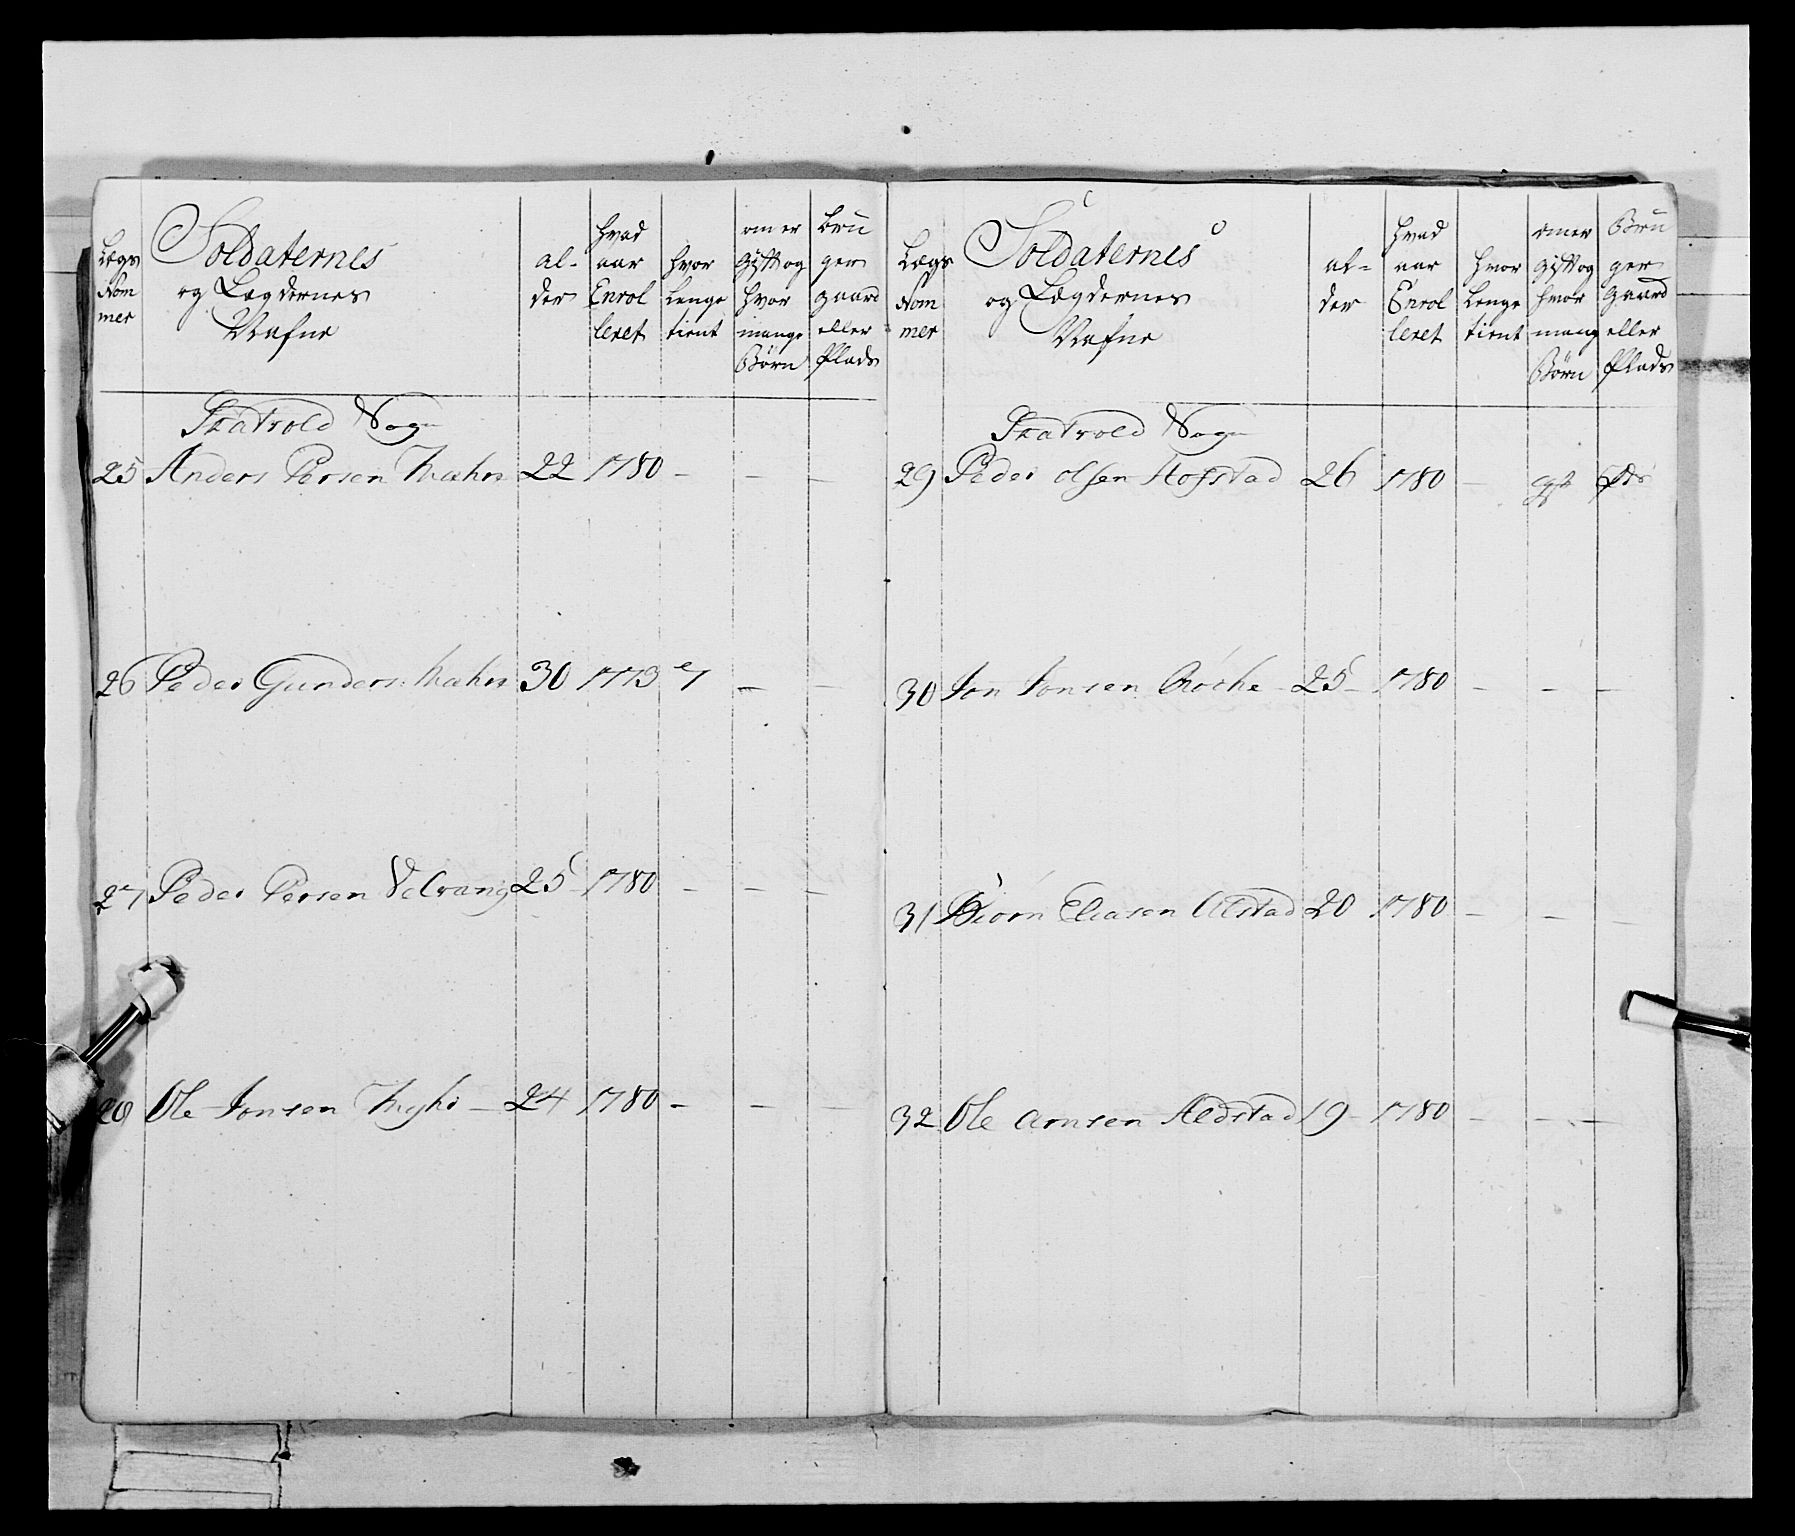 Lægs
Nom
mer
Soldaternes
og Lægdernes
Nafne
al-
der
hvad
aar
Enrol
leret
hvor
lenge
tient
om er
gift og
hvor
mange
Børn
bru
ger
gaard
eller
Plads
Skatvold Sogn
25 Anders Persen 22 1780 - - -
26 Peder Gunders. 30 1773 7 - -
27 Peder Persen 25 - 1780 - - -
28 Ole Jonsen - 24 1780 - - -
Lægs
Nom
mer
Soldaternes
og Lægdernes
Nafne
al-
der
hvad
aar
Enrol
leret
hvor
lenge
tient
om er
gift og
hvor
mang
Børn
Bru
ger
Gaard
eller
Plads
Skatvold Sogn
29 Peder Olsen Hofstad 26 1780 - gft Pds
30 Jon Jonsen Røske - 25 - 1780 - - -
31 Biørn Eliasen Alstad 20 1780 - - -
32 Ole Arnsen Aldstad 19 - 1780 - - -